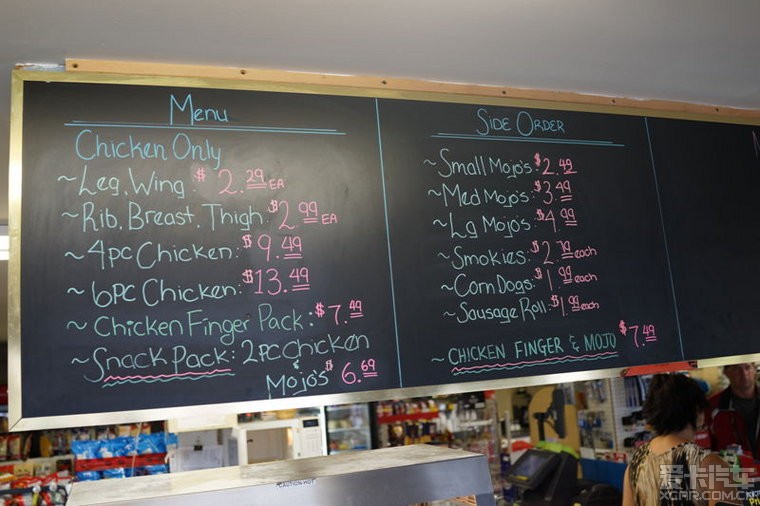 Menu
Chicken Only
~Leg, Wing: $2.29 EA
~Rib, Breast, Thigh: $2.99 EA
~4pc Chicken: $9.49
~6pc Chicken: $13.49
~Chicken Finger Pack: $7.49
~Snack Pack: 2pc Chicken
& Mojo's $6.69
Side Order
~Small Mojo's: $2.49
~Med Mojo's: $3.49
~Lg Mojo's: $4.99
~Smokies: $2.79 each
~Corn Dogs: $1.99 each
~Sausage Roll: $1.99 each
~CHICKEN FINGER & MOJO $7.49
CAUTION HOT
爱卡汽车
XCAR.COM.CN